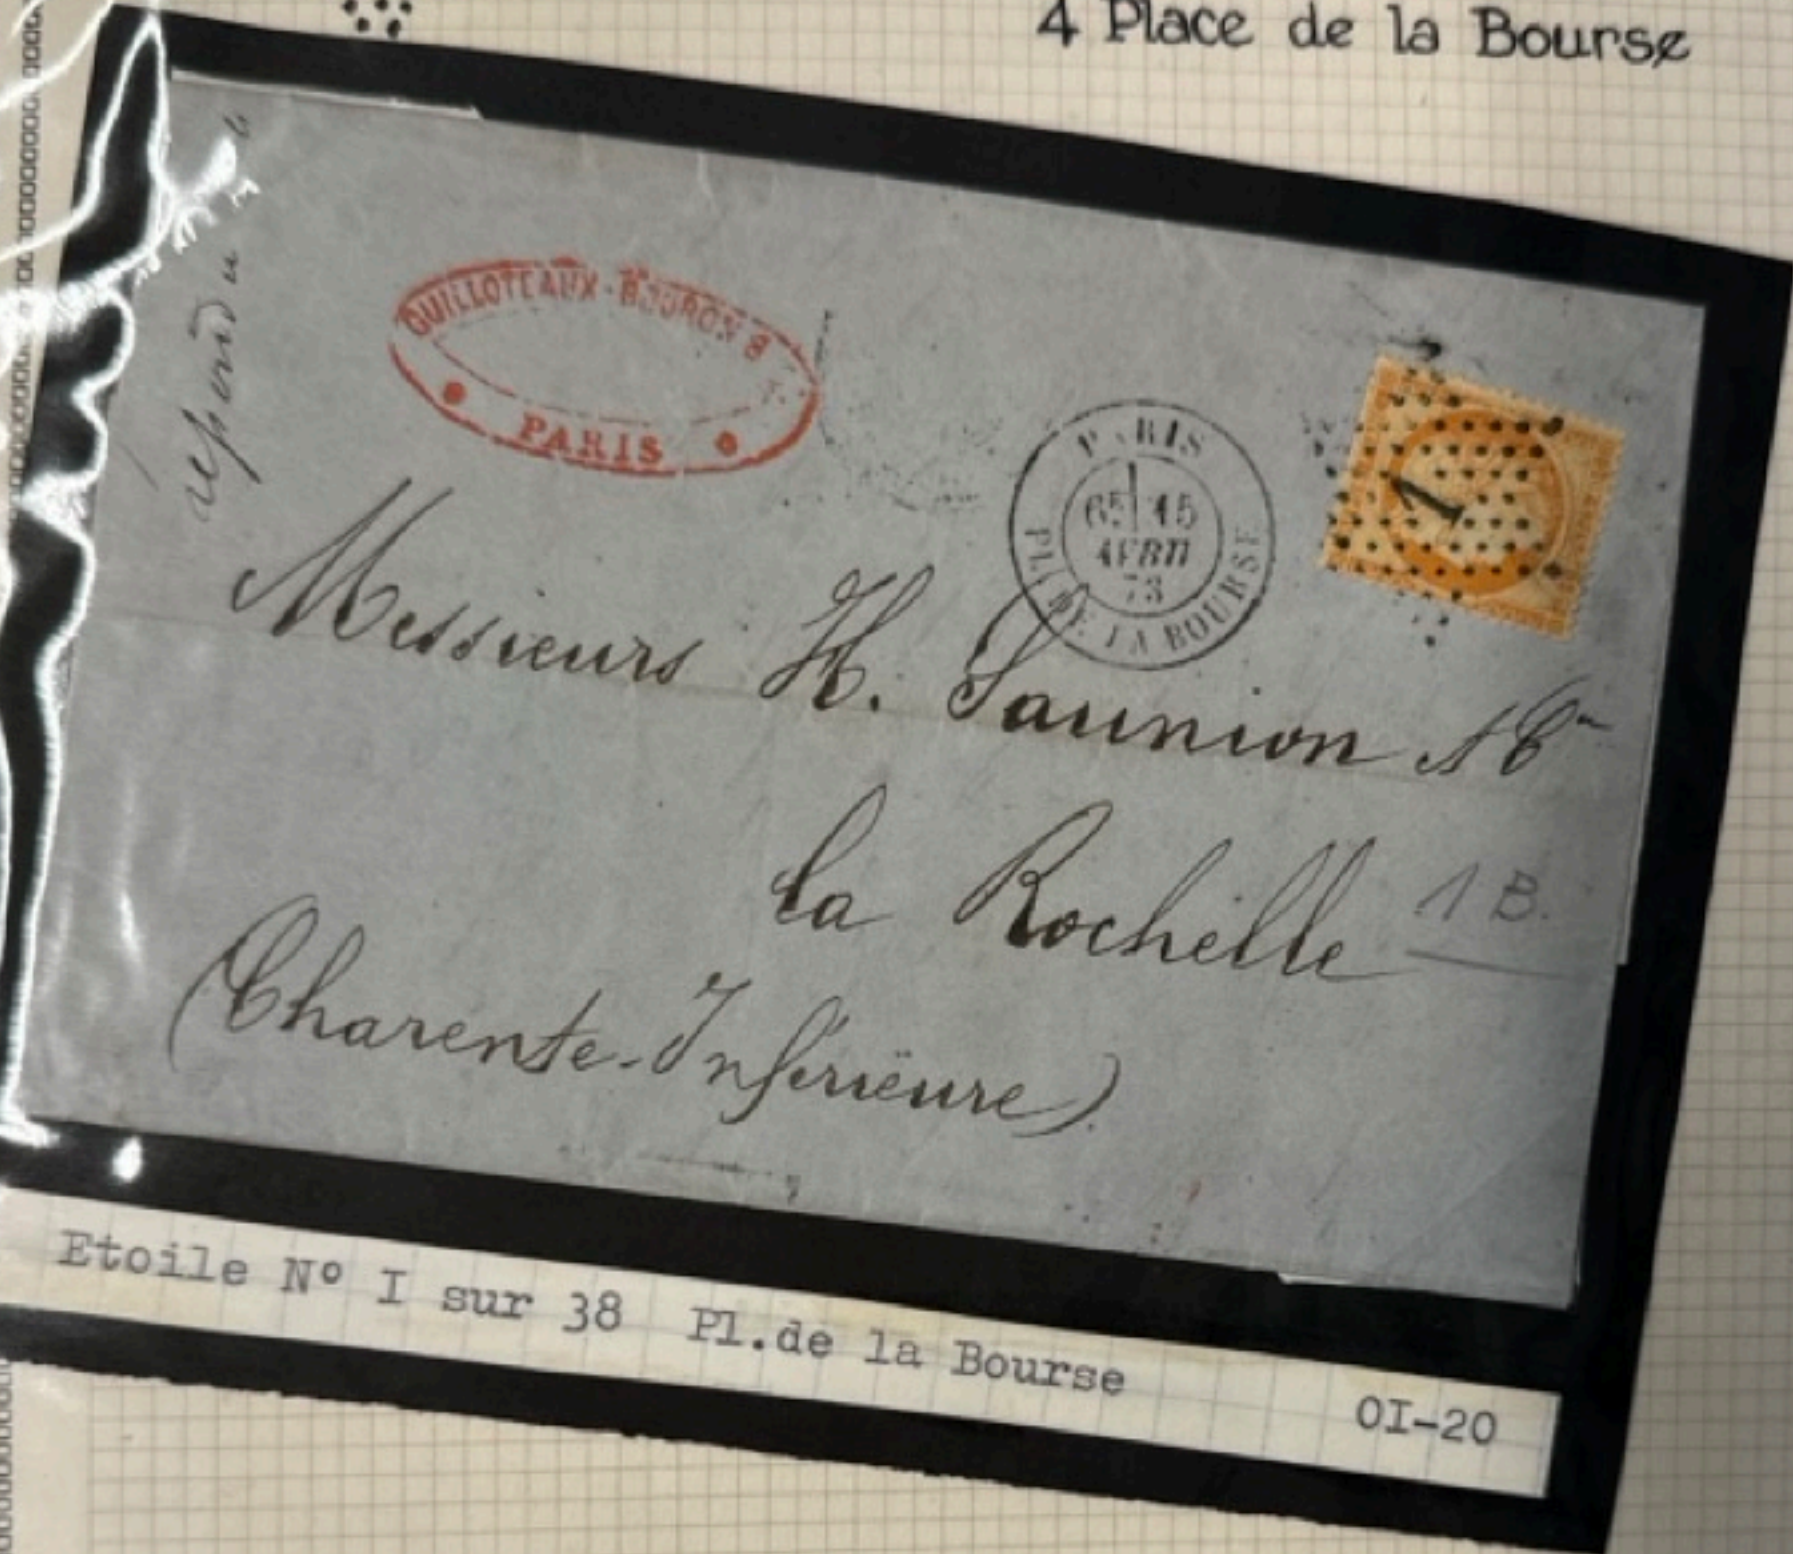 4 Place de la Bourse
répondu le
GUILLOTEAUX-BOURON &
PARIS
PARIS
15
AVRIL
73
PL. DE LA BOURSE
1
Messieurs H. Saunion & Cie
la Rochelle
1 B.
(Charente-Inférieure)
Etoile Nº I sur 38 Pl.de la Bourse
OI-20